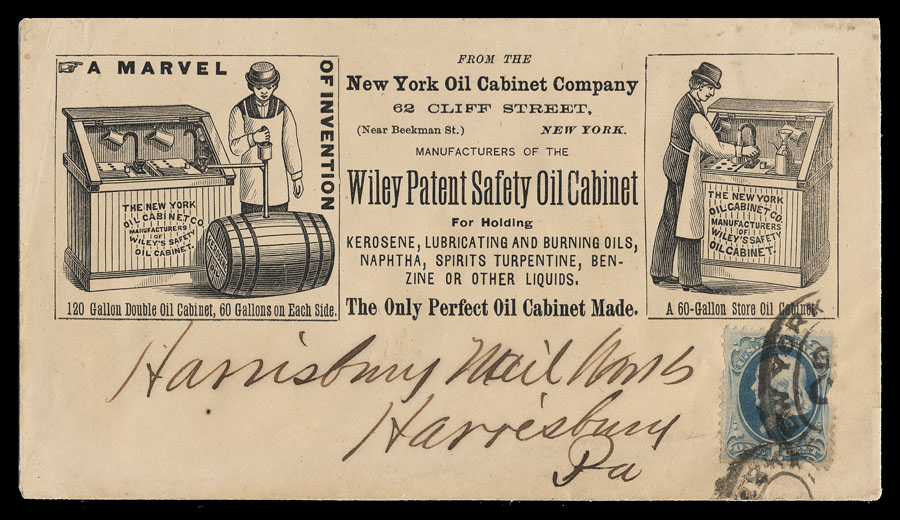 ☞ A MARVEL
OF INVENTION
THE NEW YORK
OIL CABINET CO.
MANUFACTURERS
OF
WILEY'S SAFETY
OIL CABINET.
120 Gallon Double Oil Cabinet, 60 Gallons on Each Side.
FROM THE
New York Oil Cabinet Company
62 CLIFF STREET,
(Near Beekman St.) NEW YORK.
MANUFACTURERS OF THE
Wiley Patent Safety Oil Cabinet
For Holding
KEROSENE, LUBRICATING AND BURNING OILS,
NAPHTHA, SPIRITS TURPENTINE, BEN-
ZINE OR OTHER LIQUIDS.
The Only Perfect Oil Cabinet Made.
THE NEW YORK
OIL CABINET CO.
MANUFACTURERS
OF
WILEY'S SAFETY
OIL CABINET.
A 60-Gallon Store Oil Cabinet.
Harrisburg Nail Works
Harrisburg
Pa
NEW YORK